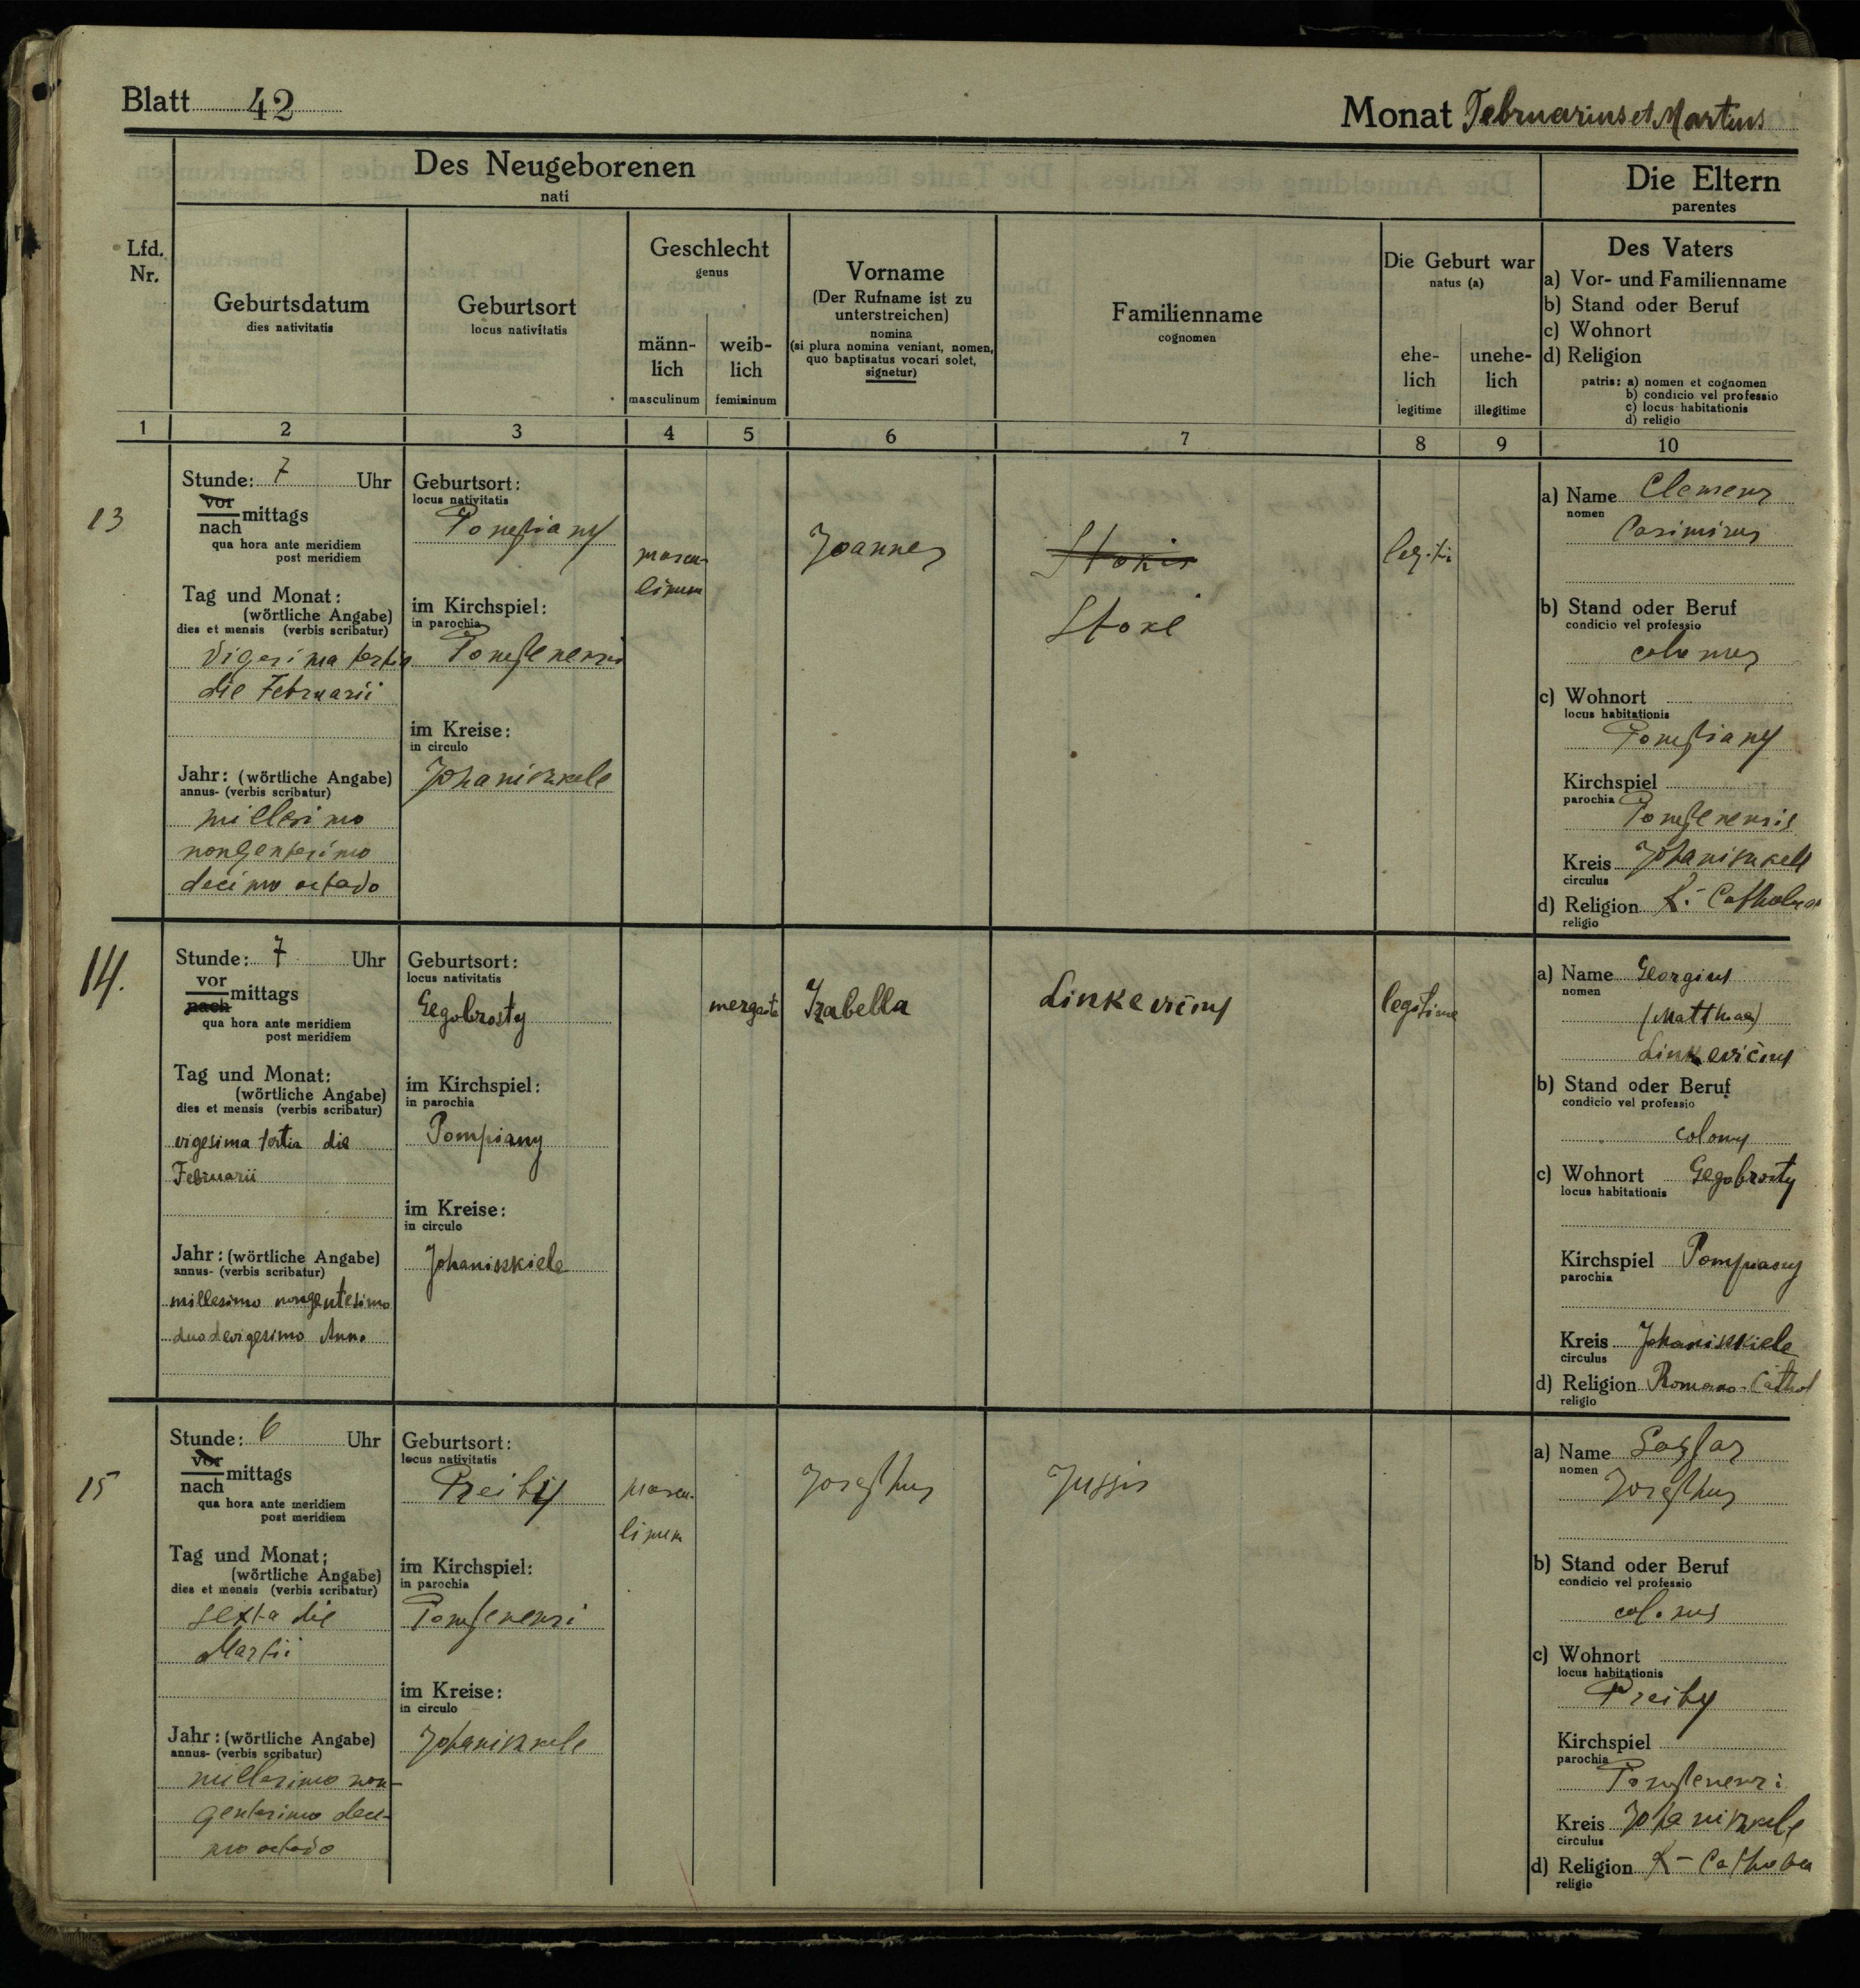 Blatt 42
Monat Februarius et Martius
Des Neugeborenen
nati
Die Eltern
parentes
Lfd.
Nr.
Geburtsdatum
dies nativitatis
Geburtsort
locus nativitatis
Geschlecht
genus
männ-
lich
masculinum
weib-
lich
femininum
Vorname
(Der Rufname ist zu
unterstreichen)
nomina
(si plura nomina veniant, nomen,
quo baptisatus vocari solet,
signetur)
Familienname
cognomen
Die Geburt war
natus (a)
ehe-
lich
legitime
unehe-
lich
illegitime
Des Vaters
a) Vor- und Familienname
b) Stand oder Beruf
c) Wohnort
d) Religion
patris: a) nomen et cognomen
b) condicio vel professio
c) locus habitationis
d) religio
1 2 3 4 5 6 7 8 9 10
13
Stunde: 7 Uhr
vor
nach mittags
qua hora ante meridiem
post meridiem
Tag und Monat:
(wörtliche Angabe)
dies et mensis (verbis scribatur)
Vigesima tertia
die Februarii
Jahr: (wörtliche Angabe)
annus- (verbis scribatur)
millesimo
nongentesimo
decimo octavo
Geburtsort:
locus nativitatis
Pompiany
im Kirchspiel:
in parochia
Pompenensi
im Kreise:
in circulo
Johaniszkele
mascu-
linum
Joannes
Stokis
Stoke
legiti
a) Name Clemens
nomen
Casimirus
b) Stand oder Beruf
condicio vel professio
colonus
c) Wohnort
locus habitationis
Pompiany
Kirchspiel
parochia
Pompenensis
Kreis Johaniszkele
circulus
d) Religion R. Catholica
religio
14.
Stunde: 7 Uhr
vor
nach mittags
qua hora ante meridiem
post meridiem
Tag und Monat:
(wörtliche Angabe)
dies et mensis (verbis scribatur)
vigesima tertia die
Februarii
Jahr: (wörtliche Angabe)
annus- (verbis scribatur)
millesimo nongentesimo
duodevigesimo Anno
Geburtsort:
locus nativitatis
Gegobrosty
im Kirchspiel:
in parochia
Pompiany
im Kreise:
in circulo
Johaniszkiele
mergaite
Izabella
Linkevičius
legitime
a) Name Georgius
nomen
(Matthae)
Linkevičius
b) Stand oder Beruf
condicio vel professio
colonus
c) Wohnort Gegobrosty
locus habitationis
Kirchspiel Pompiany
parochia
Kreis Johaniszkiele
circulus
d) Religion Romano-Cathol
religio
15
Stunde: 6 Uhr
vor
nach mittags
qua hora ante meridiem
post meridiem
Tag und Monat:
(wörtliche Angabe)
dies et mensis (verbis scribatur)
sexta die
Martii
Jahr: (wörtliche Angabe)
annus- (verbis scribatur)
millesimo non-
gentesimo deci-
mo octavo
Geburtsort:
locus nativitatis
Preity
im Kirchspiel:
in parochia
Pompenensi
im Kreise:
in circulo
Johaniszkele
mascu-
linum
Josephus
Jussis
a) Name
nomen
Josephus
b) Stand oder Beruf
condicio vel professio
colonus
c) Wohnort
locus habitationis
Preity
Kirchspiel
parochia
Pompenensi
Kreis Johaniszkele
circulus
d) Religion R-Catholica
religio